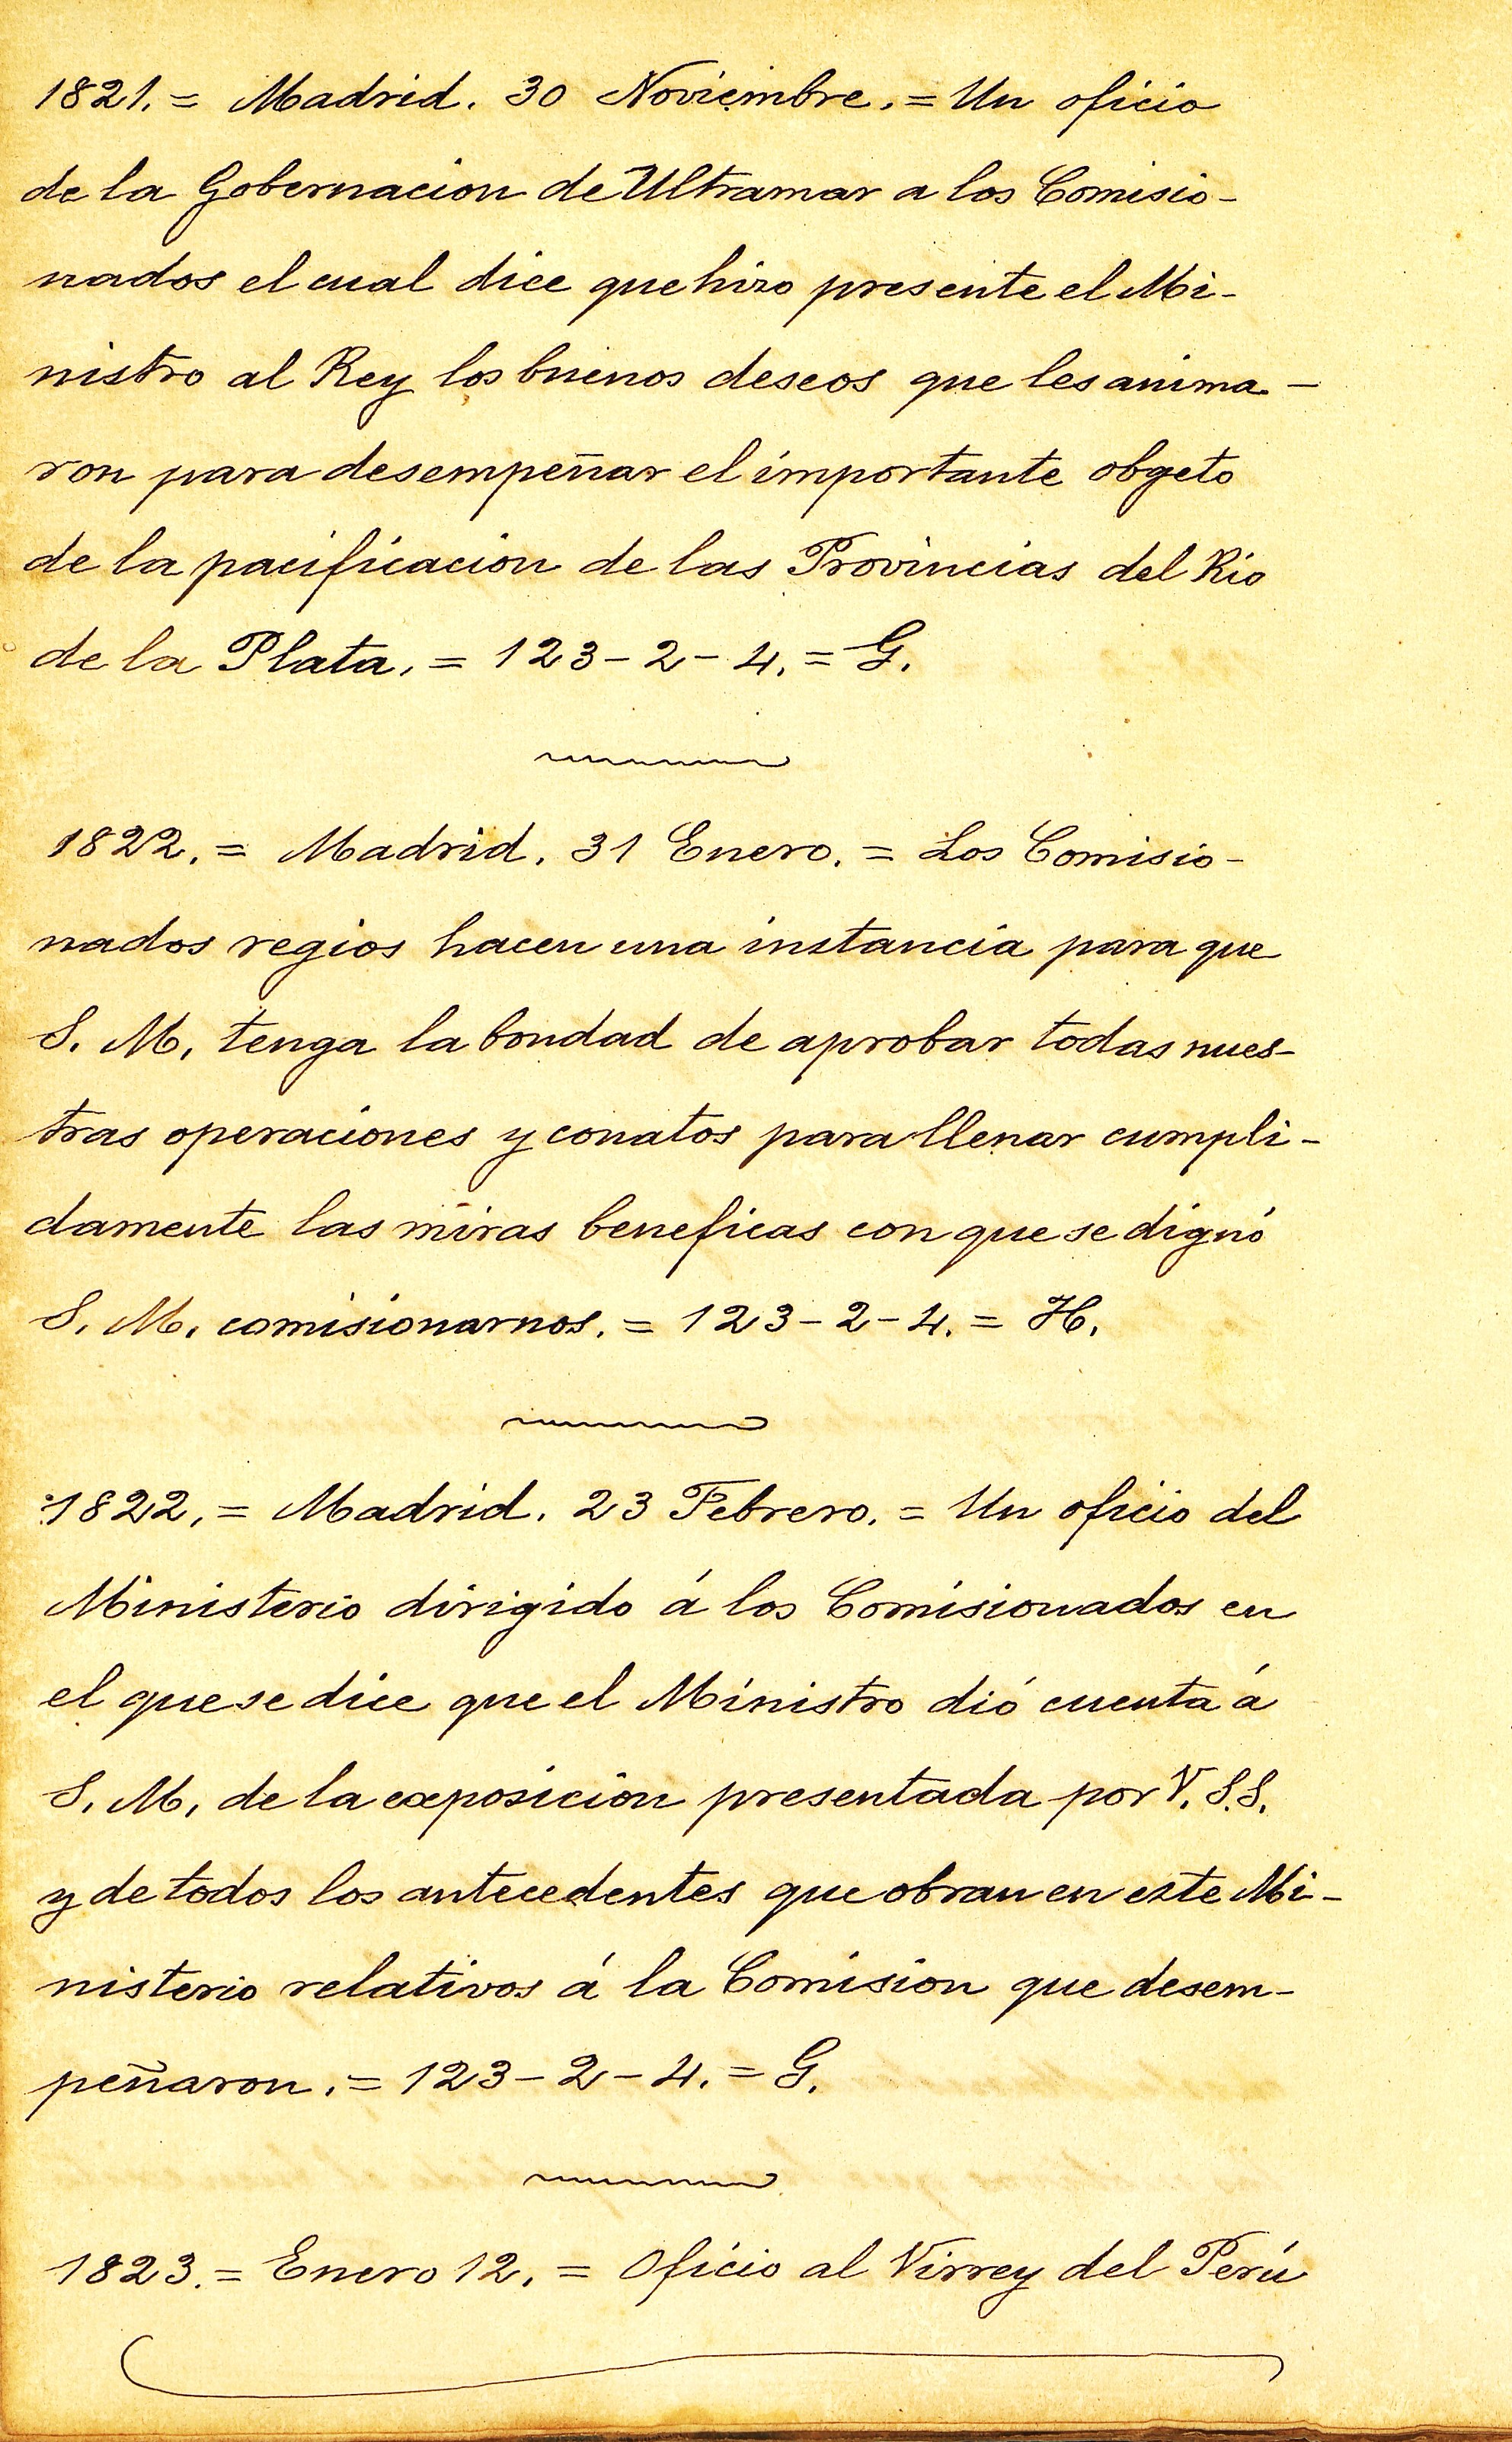 1821. = Madrid. 30 Noviembre. = Un oficio
de la Gobernacion de Ultramar a los Comisio-
nados el cual dice que hizo presente el Mi-
nistro al Rey los buenos deseos que les anima-
ron para desempeñar el importante obgeto
de la pacificacion de las Provincias del Rio
de la Plata. = 123-2-4. = G.
1822. = Madrid. 31 Enero. = Los Comisio-
nados regios hacen una instancia para que
S. M. tenga la bondad de aprobar todas nues-
tras operaciones y conatos para llenar cumpli-
damente las miras beneficas con que se dignó
S. M. comisionarnos. = 123-2-4. = H.
1822. = Madrid. 23 Febrero. = Un oficio del
Ministerio dirigido á los Comisionados en
el que se dice que el Ministro dió cuenta á
S. M. de la exposicion presentada por V. S.S.
y de todos los antecedentes que obran en este Mi-
nisterio relativos á la Comision que desem-
peñaron. = 123-2-4. = G.
1823. = Enero 12. = Oficio al Virrey del Perú